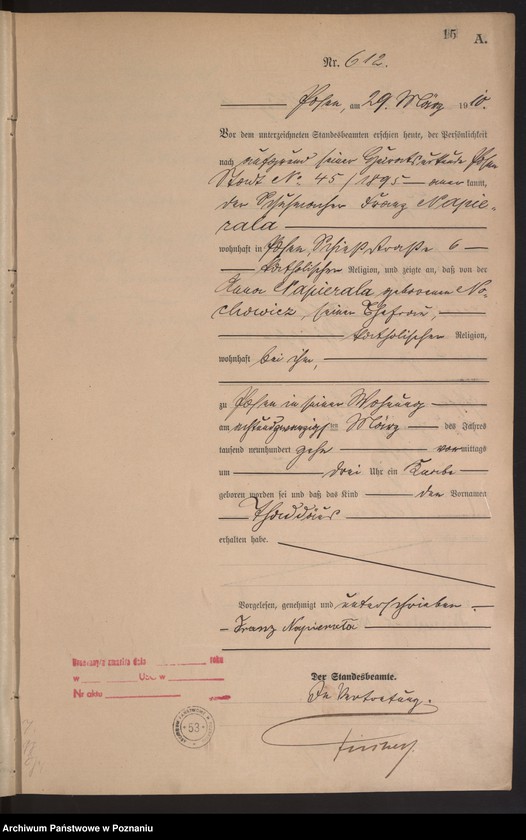 15 A.
Nr. 612.
Posen, am 29. März 1910.
Vor dem unterzeichneten Standesbeamten erschien heute, der Persönlichkeit
nach aufgrund seiner Geburtsurkunde Posen
Stadt No 45/1895 — anerkannt,
der Schuhmacher Franz Napie-
rala
wohnhaft in Posen, Schießstraße 6
katholischer Religion, und zeigte an, daß von der
Anna Napierala geborenen
seiner Ehefrau,
katholischer Religion,
wohnhaft bei ihm,
zu Posen in seiner Wohnung
am achtundzwanzigsten März des Jahres
tausend neunhundert zehn vormittags
um drei Uhr ein Knabe
geboren worden sei und daß das Kind den Vornamen
Thaddäus
erhalten habe.
Vorgelesen, genehmigt und unterschrieben
Franz Napierala
Der Standesbeamte.
In Vertretung.
roku
w Usc w
Nr aktu
53
Archiwum Państwowe w Poznaniu